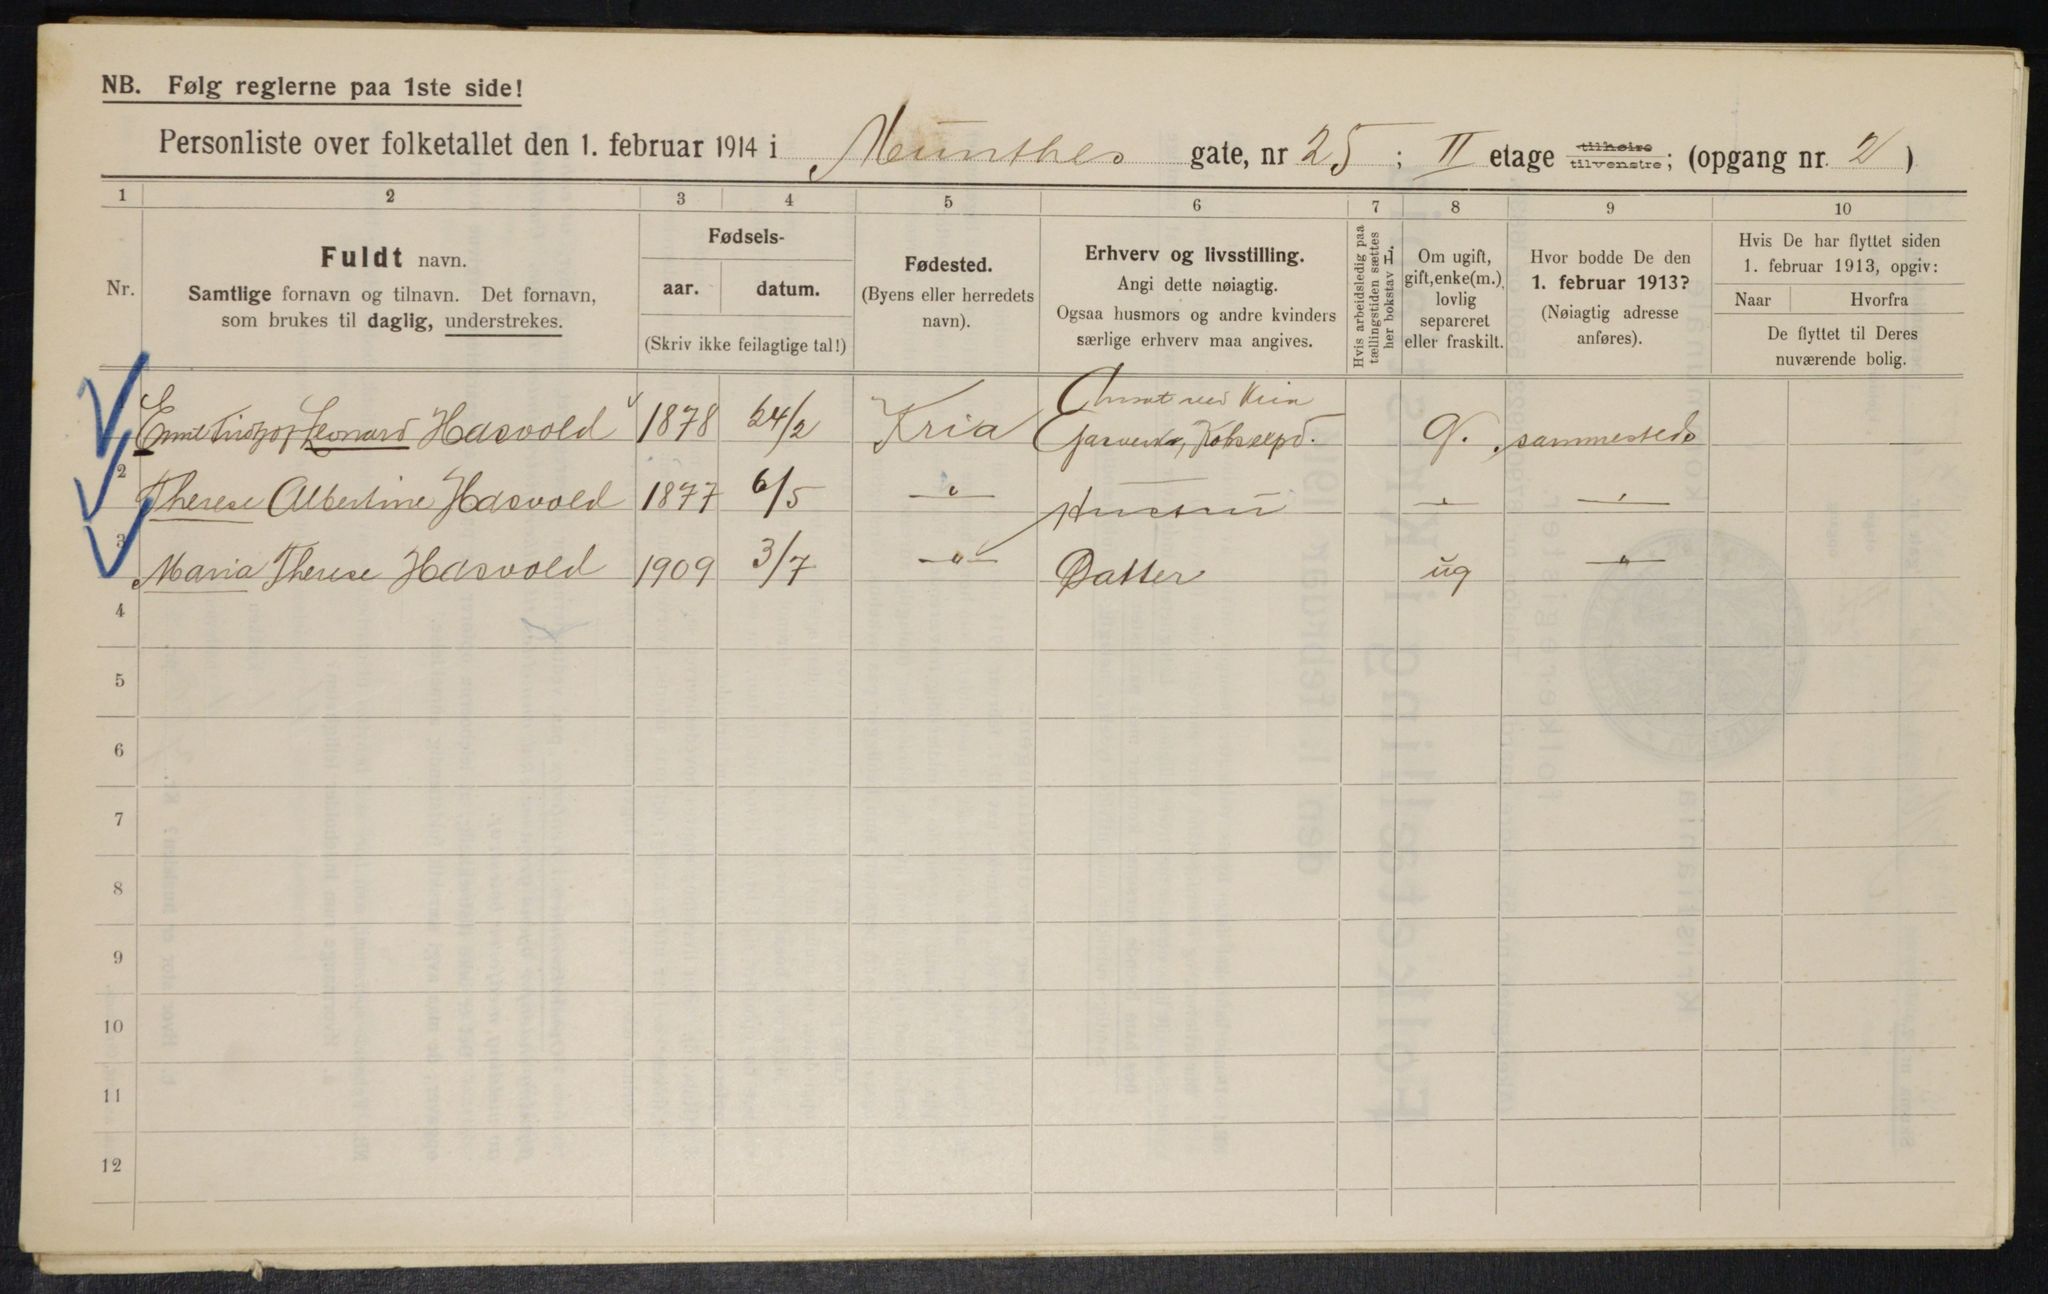 NB. Følg reglerne paa 1ste side!
Personliste over folketallet den 1. februar 1914 i Munthes gate, nr 25; II etage tilhøire tilvenstre; (opgang nr. 2)
1 2 3 4 5 6 7 8 9 10
Nr.
Fuldt navn.
Samtlige fornavn og tilnavn. Det fornavn,
som brukes til daglig, understrekes.
Fødsels-
aar. datum.
(Skriv ikke feilagtige tal!)
Fødested.
(Byens eller herredets
navn).
Erhverv og livsstilling.
Angi dette nøiagtig.
Ogsaa husmors og andre kvinders
særlige erhverv maa angives.
Hvis arbeidsledig paa
tællingstiden sættes
her bokstav L.
Om ugift,
gift, enke(m.),
lovlig
separeret
eller fraskilt.
Hvor bodde De den
1. februar 1913?
(Nøiagtig adresse
anføres).
Hvis De har flyttet siden
1. februar 1913, opgiv:
Naar Hvorfra
De flyttet til Deres
nuværende bolig.
Emil Leonard Hasvold 1878 24/2 Kria ved Kria
g. sammesteds
2 Therese Albertine Hasvold 1877 6/5 — " — Hustru — " — — " —
3 Maria Therese Hasvold 1909 3/7 — " — Datter ug — " —
4
5
6
7
8
9
10
11
12